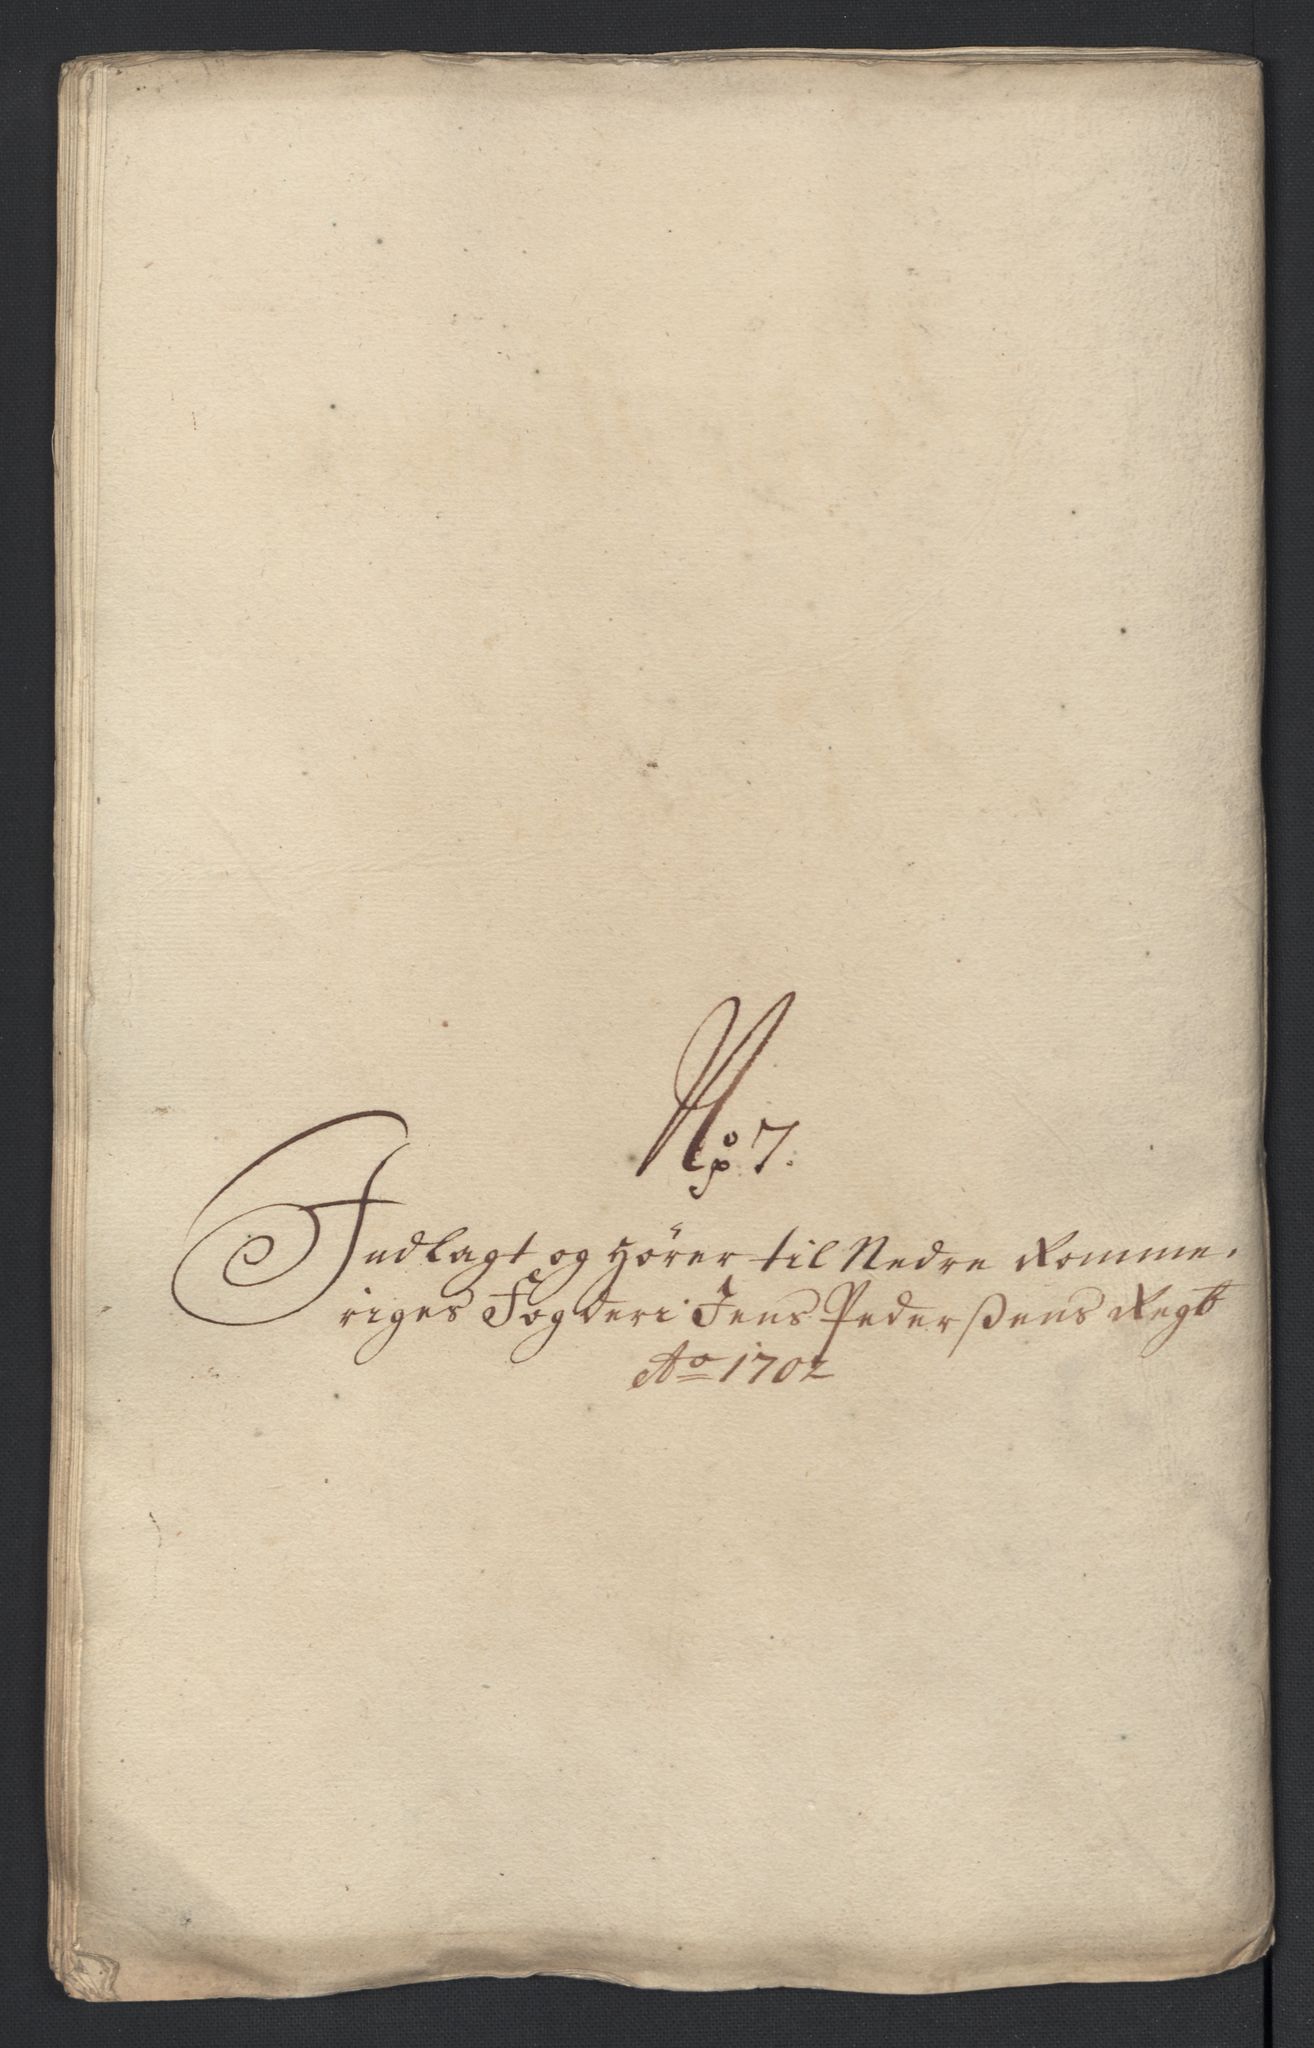 No 7.
Indlagt og hörer til Nedre Romme,
riges Fogderi Jens Pederßens Regb
Ao 1702